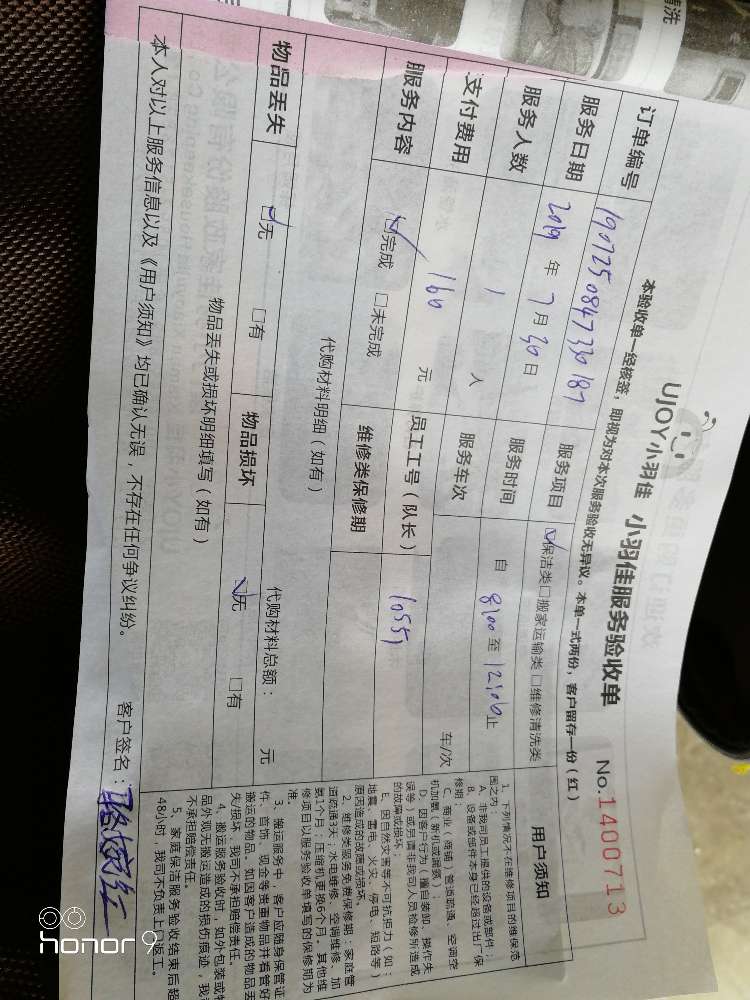 清洗
UJOY小羽佳 小羽佳服务验收单
No.1400713
本验收单一经核签，即视为对本次服务验收无异议。本单一式两份，客户留存一份（红）
订单编号 190725084733018
服务项目 保洁类 搬家运输类 维修清洗类
服务日期 2019 年 7 月 30 日
服务时间 自 8:00 至 12:00 止
服务人数 1 人
服务车次 车/次
支付费用 160 元
员工工号（队长） 10551
服务内容 完成 未完成
维修类保修期
代购材料明细（如有）
代购材料总额： 元
物品丢失 无 有
物品损坏 无 有
物品丢失或损坏明细填写（如有）
本人对以上服务信息以及《用户须知》均已确认无误，不存在任何争议纠纷。
客户签名：
用户须知
1、下列情况不在维修项目的维保范
围之内：
A、非我司员工提供的设备或部件；
B、设备或部件本身已经超过出厂保
修期；
C、商业（商铺）管道疏通、空调空
机加氟（新机或漏氟）；
D、因客户行为（擅自装卸、操作失
误等）或另请非我司人员抢修所造成
的故障或损坏；
E、因自然灾害等不可抗拒力（如：
地震、雷电、火灾、停电、短路等）
原因造成的故障或损坏。
2、维修类服务免费保修期：家庭管
道疏通3天；水电维修、空调维修、加
氟1个月；压缩机更换6个月。其他维
修项目以服务验收单填写的保修期为
准。
3、搬运服务中，客户应随身保管证
件、首饰、现金等贵重物品并看管好
搬运的物品。如因客户造成的物品丢
失/损坏，我司不承担赔偿责任。
4、搬运服务验收时，如外包装或物
品外观无搬运造成的损伤痕迹，我司
不承担赔偿责任。
5、家庭保洁服务验收结束后超
48小时，我司不负责上门返工。
honor 9